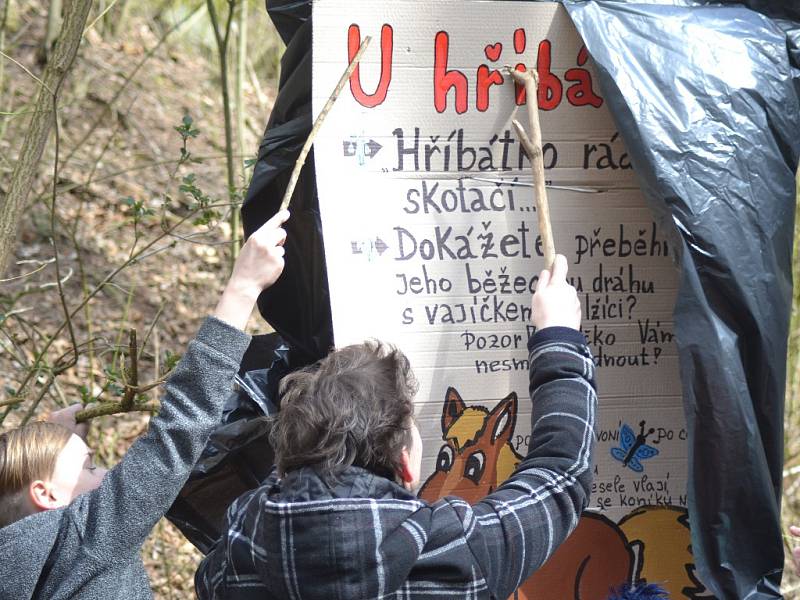 U hříbá
„Hříbátko rád
skotačí..."
Dokážete přeběhn
jeho běžec u dráhu
s vajíčkem lžíci?
Pozor Vám
nesm dnout?
voní po
esele vlají
se koníku